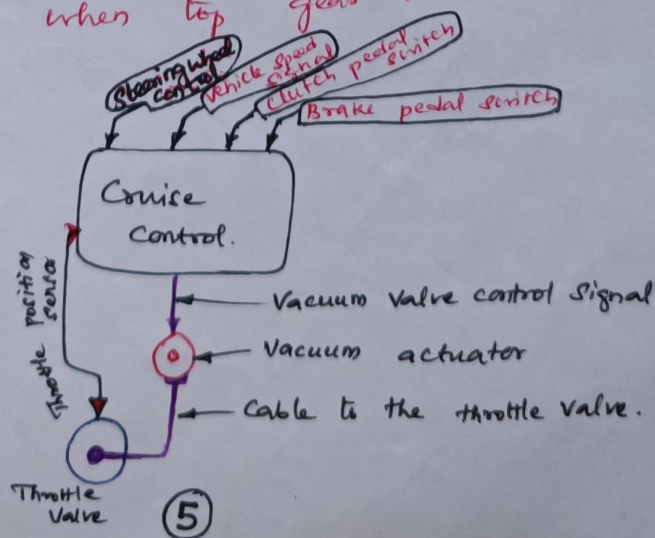 when top gear
Steering wheel
control.
Vehicle speed
signal
Clutch pedal
switch
Brake pedal switch
Cruise
Control.
Throttle position
sensor
Vacuum valve control signal
Vacuum actuator
Cable to the throttle valve.
Throttle
Valve
5